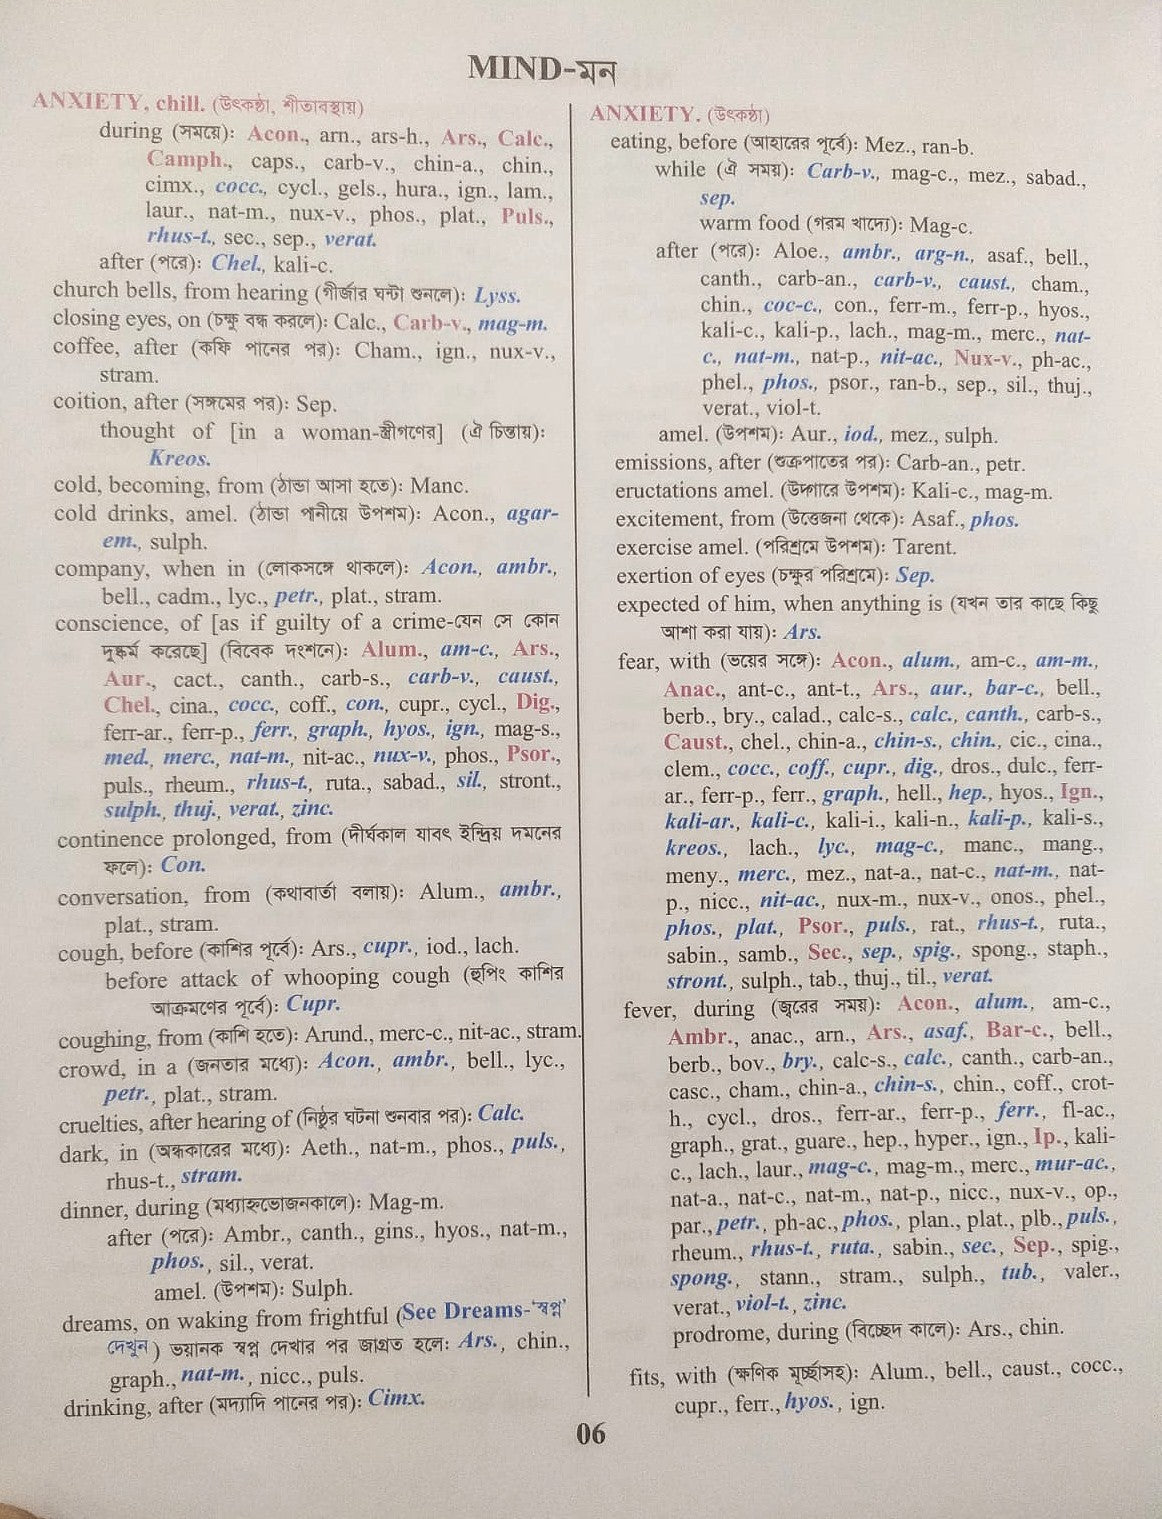 MIND-মন
ANXIETY, chill. (উৎকণ্ঠা, শীতাবস্থায়)
during (সময়ে): Acon., arn., ars-h., Ars., Calc.,
Camph., caps., carb-v., chin-a., chin.,
cimx., cocc., cycl., gels., hura., ign., lam.,
laur., nat-m., nux-v., phos., plat., Puls.,
rhus-t., sec., sep., verat.
after (পরে): Chel., kali-c.
church bells, from hearing (গীর্জার ঘন্টা শুনলে): Lyss.
closing eyes, on (চক্ষু বন্ধ করলে): Calc., Carb-v., mag-m.
coffee, after (কফি পানের পর): Cham., ign., nux-v.,
stram.
coition, after (সঙ্গমের পর): Sep.
thought of [in a woman-স্ত্রীগণের] (ঐ চিন্তায়):
Kreos.
cold, becoming, from (ঠান্ডা আসা হতে): Manc.
cold drinks, amel. (ঠান্ডা পানীয়ে উপশম): Acon., agar-
em., sulph.
company, when in (লোকসঙ্গে থাকলে): Acon., ambr.,
bell., cadm., lyc., petr., plat., stram.
conscience, of [as if guilty of a crime-যেন সে কোন
দুষ্কর্ম করেছে] (বিবেক দংশনে): Alum., am-c., Ars.,
Aur., cact., canth., carb-s., carb-v., caust.,
Chel., cina., cocc., coff., con., cupr., cycl., Dig.,
ferr-ar., ferr-p., ferr., graph., hyos., ign., mag-s.,
med., merc., nat-m., nit-ac., nux-v., phos., Psor.,
puls., rheum., rhus-t., ruta., sabad., sil., stront.,
sulph., thuj., verat., zinc.
continence prolonged, from (দীর্ঘকাল যাবৎ ইন্দ্রিয় দমনের
ফলে): Con.
conversation, from (কথাবার্তা বলায়): Alum., ambr.,
plat., stram.
cough, before (কাশির পূর্বে): Ars., cupr., iod., lach.
before attack of whooping cough (হুপিং কাশির
আক্রমণের পূর্বে): Cupr.
coughing, from (কাশি হতে): Arund., merc-c., nit-ac., stram.
crowd, in a (জনতার মধ্যে): Acon., ambr., bell., lyc.,
petr., plat., stram.
cruelties, after hearing of (নিষ্ঠুর ঘটনা শুনবার পর): Calc.
dark, in (অন্ধকারের মধ্যে): Aeth., nat-m., phos., puls.,
rhus-t., stram.
dinner, during (মধ্যাহ্নভোজনকালে): Mag-m.
after (পরে): Ambr., canth., gins., hyos., nat-m.,
phos., sil., verat.
amel. (উপশম): Sulph.
dreams, on waking from frightful (See Dreams-'স্বপ্ন'
দেখুন) ভয়ানক স্বপ্ন দেখার পর জাগ্রত হলে: Ars., chin.,
graph., nat-m., nicc., puls.
drinking, after (মদ্যাদি পানের পর): Cimx.
ANXIETY. (উৎকণ্ঠা)
eating, before (আহারের পূর্বে): Mez., ran-b.
while (ঐ সময়): Carb-v., mag-c., mez., sabad.,
sep.
warm food (গরম খাদ্যে): Mag-c.
after (পরে): Aloe., ambr., arg-n., asaf., bell.,
canth., carb-an., carb-v., caust., cham.,
chin., coc-c., con., ferr-m., ferr-p., hyos.,
kali-c., kali-p., lach., mag-m., merc., nat-
c., nat-m., nat-p., nit-ac., Nux-v., ph-ac.,
phel., phos., psor., ran-b., sep., sil., thuj.,
verat., viol-t.
amel. (উপশম): Aur., iod., mez., sulph.
emissions, after (শুক্রপাতের পর): Carb-an., petr.
eructations amel. (উদ্গারে উপশম): Kali-c., mag-m.
excitement, from (উত্তেজনা থেকে): Asaf., phos.
exercise amel. (পরিশ্রমে উপশম): Tarent.
exertion of eyes (চক্ষুর পরিশ্রমে): Sep.
expected of him, when anything is (যখন তার কাছে কিছু
আশা করা যায়): Ars.
fear, with (ভয়ের সঙ্গে): Acon., alum., am-c., am-m.,
Anac., ant-c., ant-t., Ars., aur., bar-c., bell.,
berb., bry., calad., calc-s., calc., canth., carb-s.,
Caust., chel., chin-a., chin-s., chin., cic., cina.,
clem., cocc., coff., cupr., dig., dros., dulc., ferr-
ar., ferr-p., ferr., graph., hell., hep., hyos., Ign.,
kali-ar., kali-c., kali-i., kali-n., kali-p., kali-s.,
kreos., lach., lyc., mag-c., manc., mang.,
meny., merc., mez., nat-a., nat-c., nat-m., nat-
p., nicc., nit-ac., nux-m., nux-v., onos., phel.,
phos., plat., Psor., puls., rat., rhus-t., ruta.,
sabin., samb., Sec., sep., spig., spong., staph.,
stront., sulph., tab., thuj., til., verat.
fever, during (জ্বরের সময়): Acon., alum., am-c.,
Ambr., anac., arn., Ars., asaf., Bar-c., bell.,
berb., bov., bry., calc-s., calc., canth., carb-an.,
casc., cham., chin-a., chin-s., chin., coff., crot-
h., cycl., dros., ferr-ar., ferr-p., ferr., fl-ac.,
graph., grat., guare., hep., hyper., ign., Ip., kali-
c., lach., laur., mag-c., mag-m., merc., mur-ac.,
nat-a., nat-c., nat-m., nat-p., nicc., nux-v., op.,
par., petr., ph-ac., phos., plan., plat., plb., puls.,
rheum., rhus-t., ruta., sabin., sec., Sep., spig.,
spong., stann., stram., sulph., tub., valer.,
verat., viol-t., zinc.
prodrome, during (বিচ্ছেদ কালে): Ars., chin.
fits, with (ক্ষণিক মূর্চ্ছাসহ): Alum., bell., caust., cocc.,
cupr., ferr., hyos., ign.
06